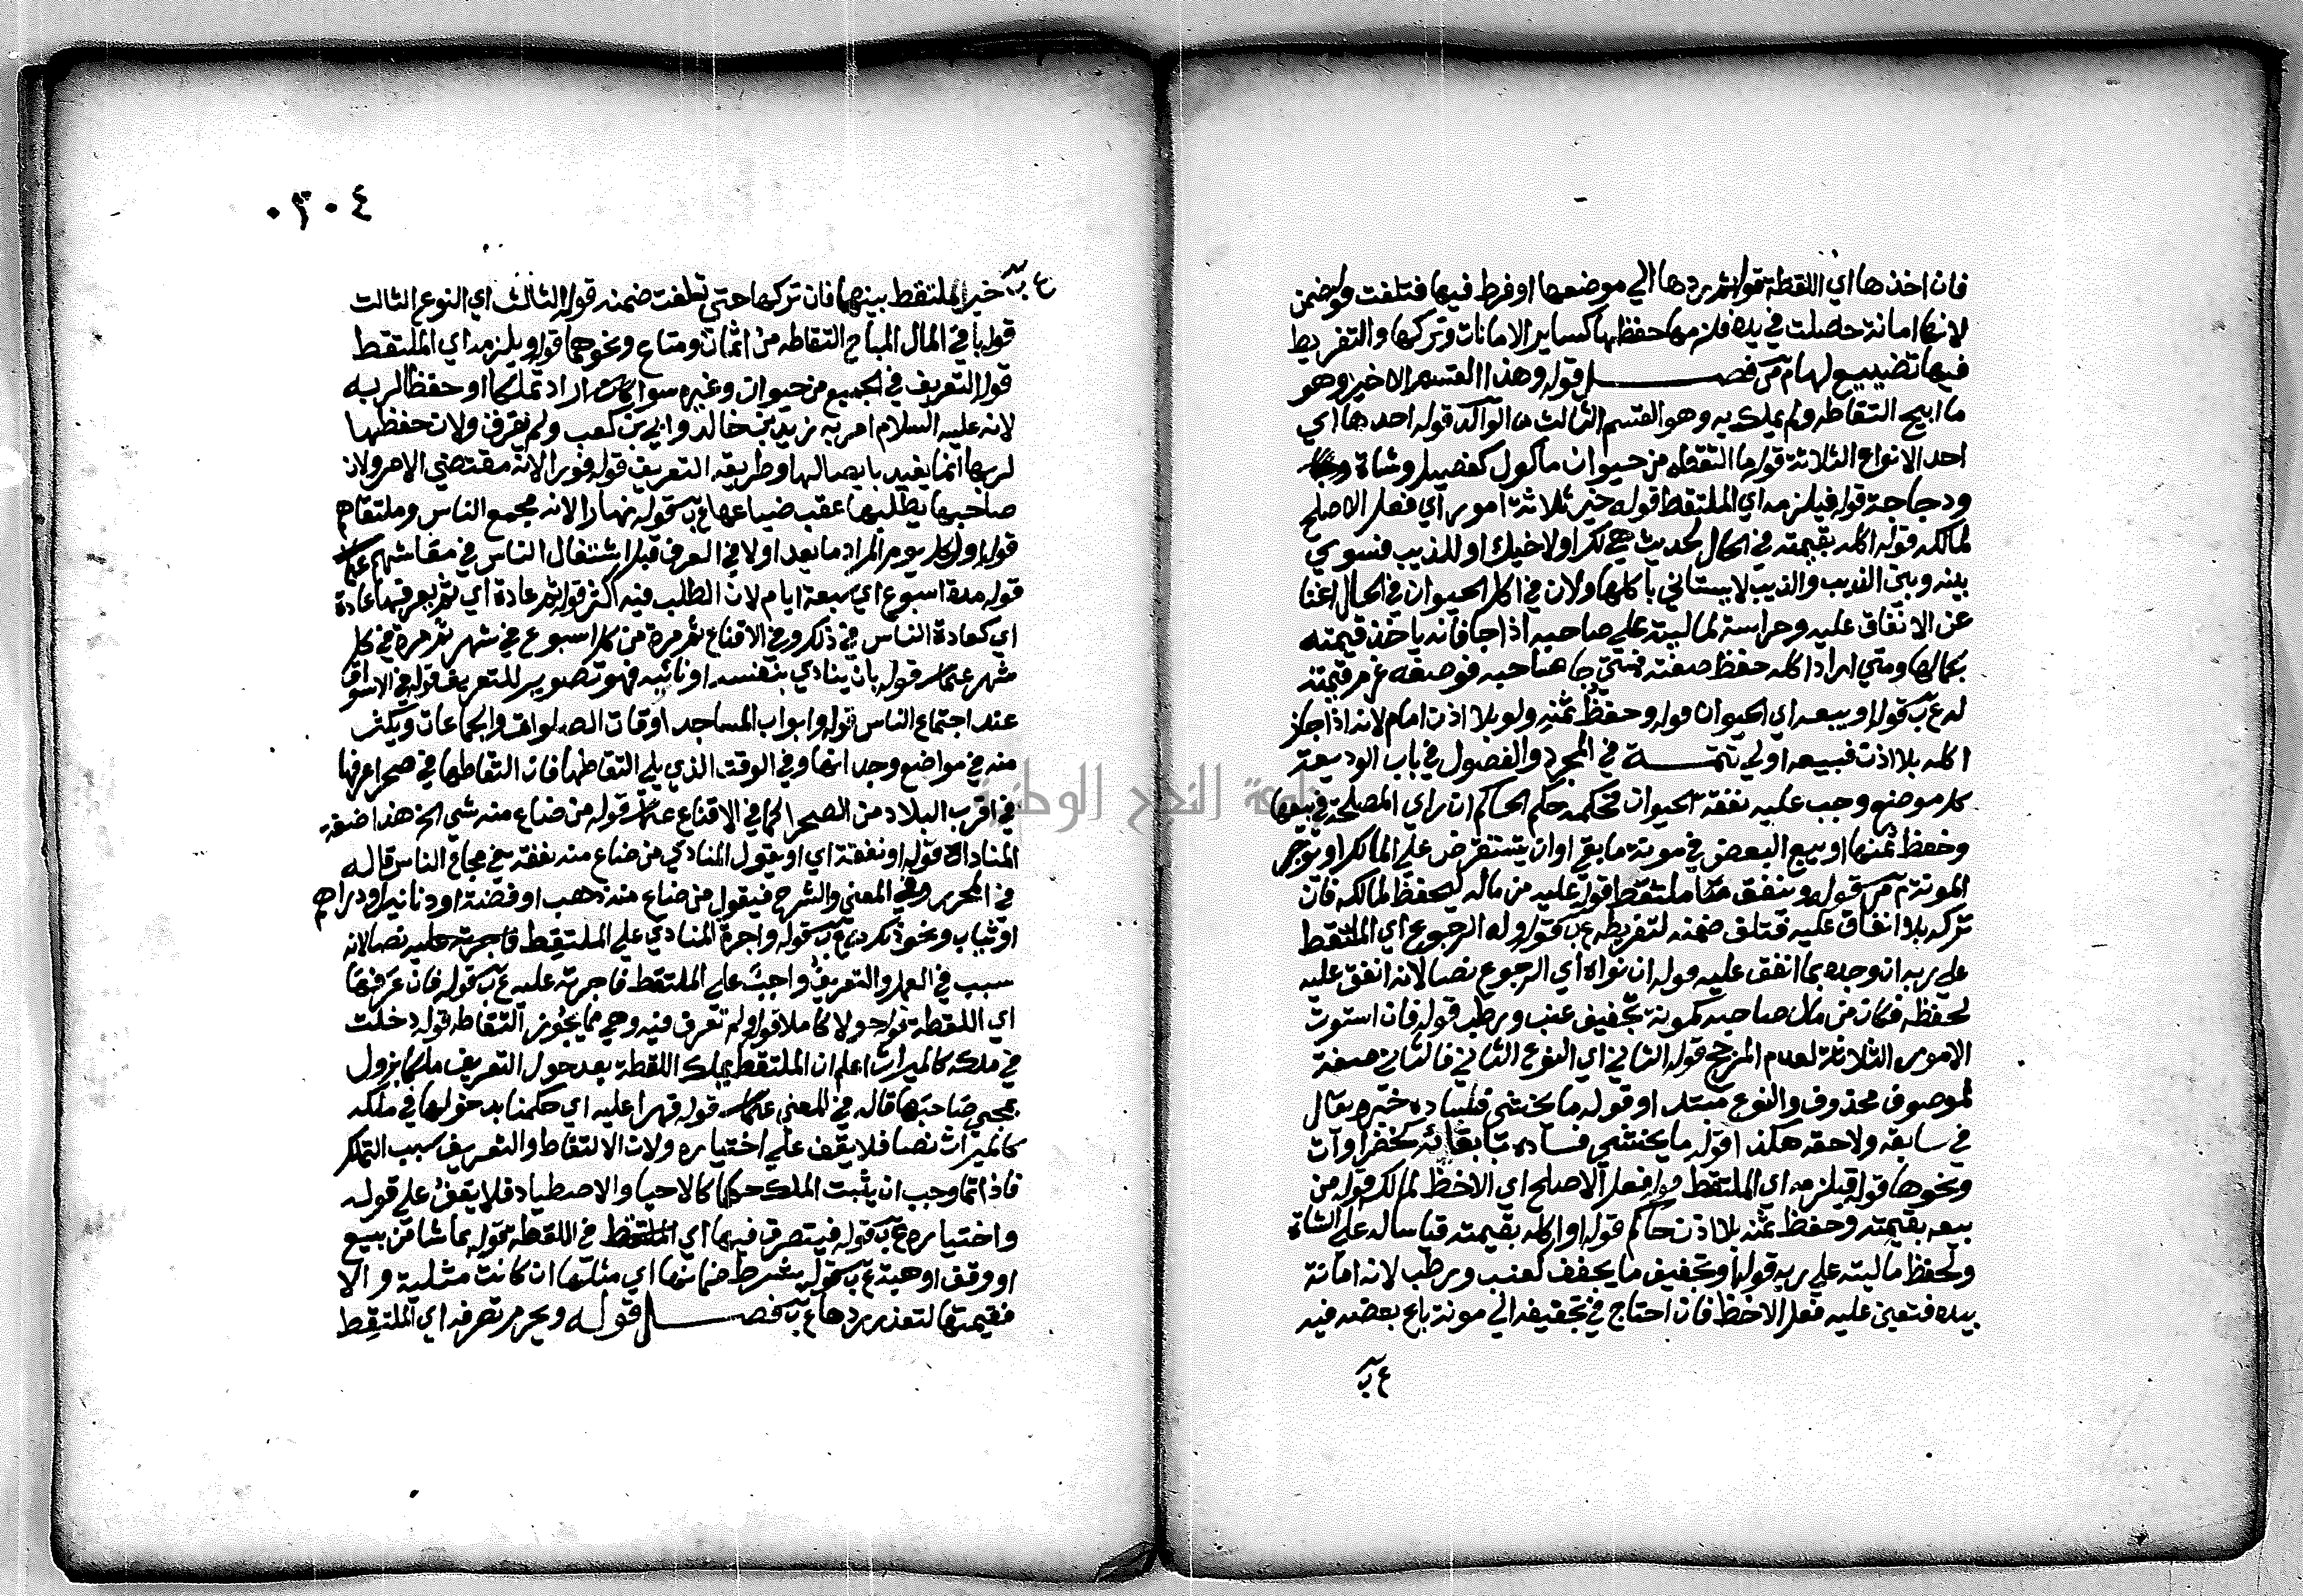 فان اخذها اي اللقطة قوله ثم ردها الي موضعها او فرط فيها فتلفت قوله ضمن
لانها امانة حصلت في يده فلزمها حفظها كساير الامانات وتركها والتفريط
فيها تضييع لها م ص فصل قوله وهذا القسم الاخير وهو
ما ابيح التقاطه ولم يملك به وهو القسم الثالث قوله احدها اي
احد الانواع الثلاثة قوله ما التقطه من حيوان ماكول كفصيل وشاة
ودجاجة قوله فيلزمه اي الملتقط قوله خير ثلاثة امور اي فعل الاصلح
لمالكه قوله اكله بقيمته في الحال لحديث هي لك او لاخيك او للذيب فسوي
بينه وبين الذيب والذيب لا يستاني باكلها ولان في اكل الحيوان في الحال اغنا
عن الانفاق عليه وحراسة لماليته علي صاحبه اذا جا فانه ياخذ قيمته
بكمالها ومتي اراد اكله حفظ صفته فمتي جا صاحبه فوصفه غرم قيمته
له ع ب قوله او بيعه اي الحيوان قوله وحفظ ثمنه ولو بلا اذن امام لانه اذا جاز
اكله بلا اذن فبيعه اولي تتمة في المجرد والفصول في باب الوديعة
كل موضع وجب عليه نفقة الحيوان فحكمه حكم الحاكم ان راي المصلحة في بيعها
وحفظ ثمنها او بيع البعض في مونة ما بقي او ان يستقرض علي المالك او يوجر
المونة م ص قوله وينفق ملتقط قوله عليه من ماله ليحفظ لمالكه فان
تركه بلا انفاق عليه فتلف ضمنه لتفريطه ع ب قوله وله الرجوع اي الملتقط
علي ربه ان وجده بما انفق عليه قوله ان نواه اي الرجوع نصا لانه انفق عليه
لحفظه فكان من مال صاحبه كمونة تجفيف عنب ورطب قوله فان استوت
الامور الثلاثة لعدم المرجح قوله الثاني اي النوع الثاني فالثاني صفة
لموصوف محذوف والنوع مبتدا وقوله ما يخشي فساده خبره يقال
في سابقه ولاحقه هكذا قوله ما يخشي فساده بابقائه كخضراوات
ونحوها قوله فيلزمه اي الملتقط قوله فعل الاصلح اي الاحظ لمالك قوله من
بيعه بقيمته وحفظ ثمنه بلا اذن حاكم قوله او اكله بقيمته قياسا له علي الشاة
ولحفظ ماليته علي ربه قوله او تجفيف ما يجفف كعنب ورطب لانه امانة
بيده فتعين عليه فعل الاحظ فان احتاج في تجفيفه الي مونة باع بعضه فيه
ع ب
٣٠٤
ع ب خير الملتقط بينهما فان تركها حتي تلفت ضمنه قوله الثالث اي النوع الثالث
قوله باقي المال المباح التقاطه من اثمان ومتاع ونحوهما قوله ويلزمه اي الملتقط
قوله التعريف في الجميع من حيوان وغيره سوا كان اراد تملكها او حفظا لربه
لانه عليه السلام امر به زيد بن خالد وابي بن كعب ولم يفرق ولان حفظها
لربها انما يفيد بايصالها وطريقه التعريف قوله فورا لانه مقتضي الامر ولان
صاحبها يطلبها عقب ضياعها ع ب قوله نهارا لانه مجمع الناس وملتقاهم
قوله اول كل يوم المراد ما يعد اولا في العرف قبل اشتغال الناس في معاشهم
قوله مدة اسبوع اي سبعة ايام لان الطلب فيه اكثر قوله ثم عادة اي ثم يعرفها عادة
اي كعادة الناس في ذلك وفي الاقناع ثم مرة من كل اسبوع في شهر ثم مرة في كل
شهر قوله بان ينادي بنفسه او نائبه فهو تصوير للتعريف قوله في الاسواق
عند اجتماع الناس قوله وابواب المساجد اوقات الصلوات والجماعات ويكثر
منه في مواضع وجدانها وفي الوقت الذي يلي التقاطها فان التقاطها في صحرا عرفها
في اقرب البلاد من الصحرا كما في الاقناع قوله من ضاع منه شي الخ هذا صفة
المناداة قوله او نفقة اي او يقول المنادي من ضاع منه نفقة في مجامع الناس قاله
في المحرر وفي المغني والشرح فيقول من ضاع منه ذهب او فضة او دنانير او دراهم
او ثياب ونحو ذلك ع ب قوله واجرة المنادي علي الملتقط فاجرته عليه نصا لانه
سبب في العمل والتعريف واجب علي الملتقط فاجرته عليه ع ب قوله فان عرفها
اي اللقطة قوله حولا كاملا قوله ولم تعرف فيه وهي مما يجوز التقاطه قوله دخلت
في ملكه كالميراث اعلم ان الملتقط يملك اللقطة بعد حول التعريف ملكا يزول
بمجي صاحبها قاله في المغني قوله قهرا عليه اي حكمنا بدخولها في ملكه
كالميراث نصا فلا يقف علي اختياره ولان الالتقاط والتعريف سبب التملك
فاذا تما وجب ان يثبت الملك حكما كالاحيا والاصطياد فلا يقف علي قوله
واختياره ع ب قوله فيتصرف فيها اي الملتقط في اللقطة قوله بما شا من بيع
او وقف او هبة ع ب قوله بشرط ضمانها اي مثلها ان كانت مثلية والا
فقيمتها لتعذر ردها ع ب فصل قوله ويحرم تصرفه اي الملتقط